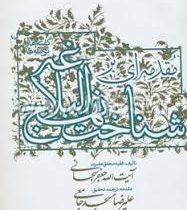 مقدمه‌ای بر
شناخت نهج البلاغه
تألیف: فقیه محقق حضرت
آیت الله جعفر سبحانی
مقدمه، ترجمه، تحقیق:
علیرضا